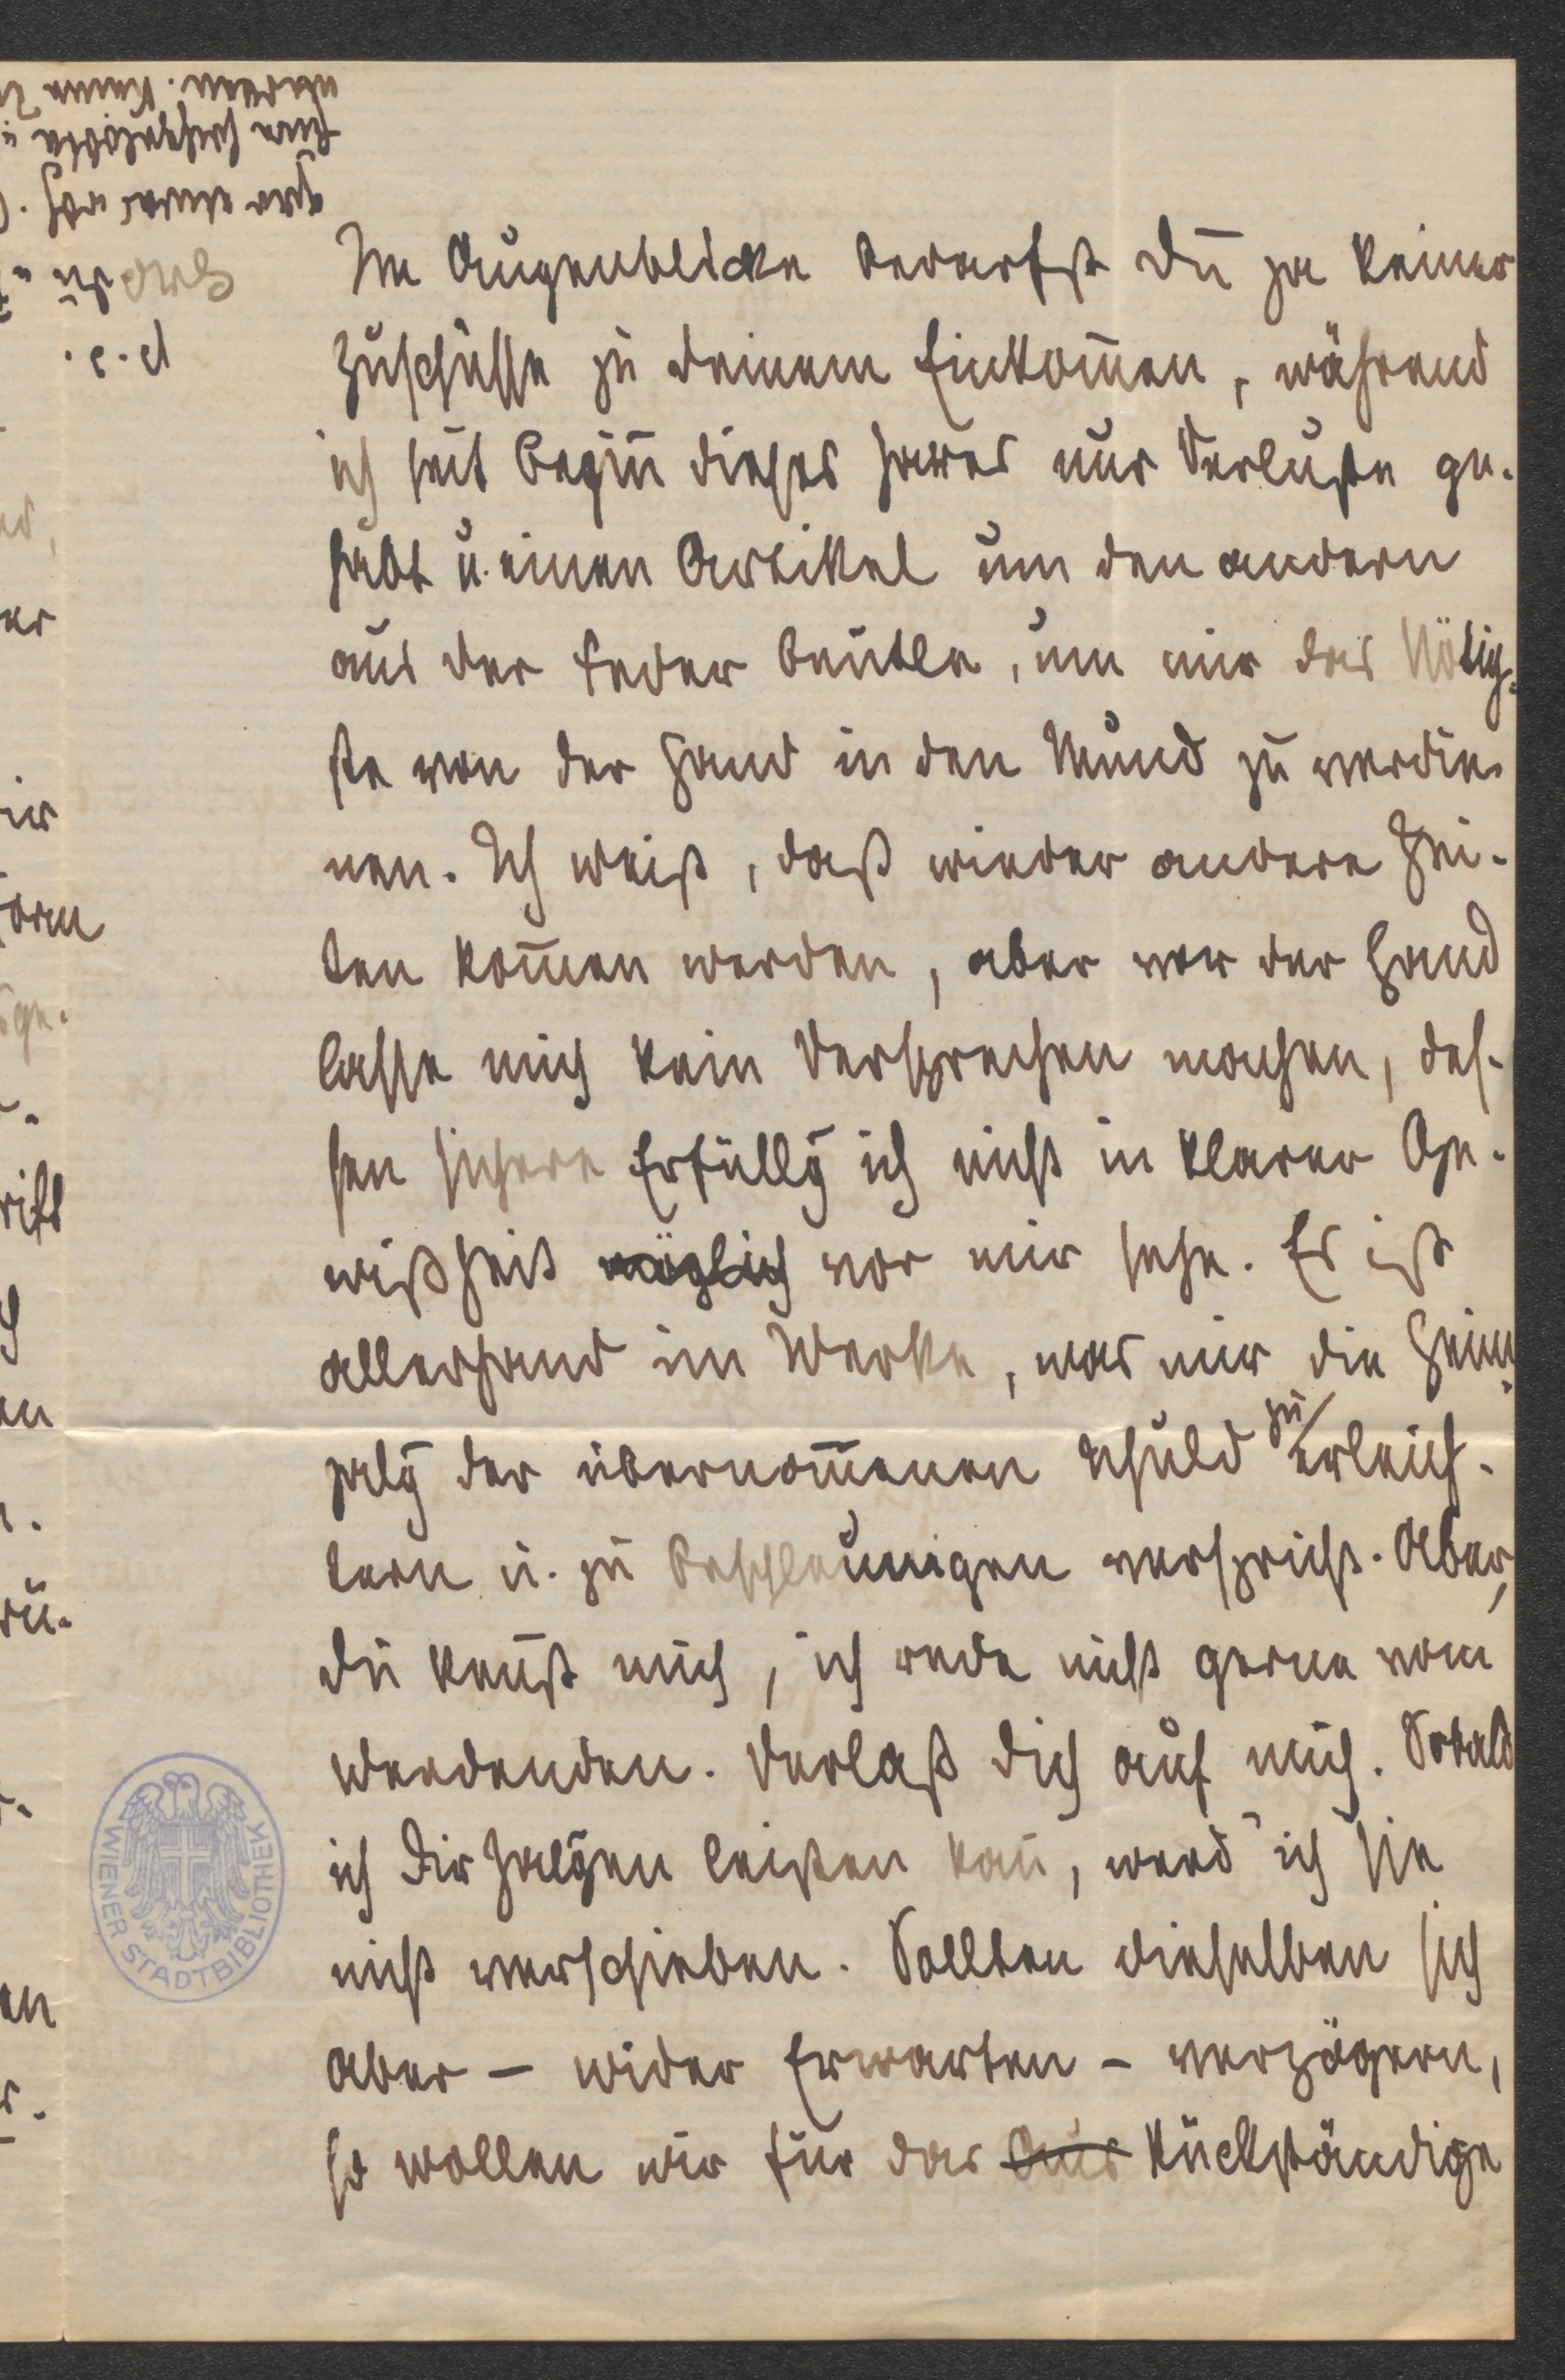 Im Augenblicke bedarfst du ja keiner
Zuschüsse zu deinem Einkom̄en, während
ich seit Begin̄ dieses Jares nur Verluste ge-
habt u. einen Artikel um den andern
aus der Feder beutle, um mir das Nötig-
ste von der Hand in den Mund zu verdie-
nen. Ich weiß, daß wieder andere Zei-
ten kom̄en werden, aber vor der Hand
lasse mich kein Versprechen machen, des-
sen sichere Erfüllg ich nicht in klarer Ge-
wißheit möglich vor mir sehe. Es ist
allerhand im Werke, was mir die Heim-
zalg der übernom̄enen Schuld zu erleich-
tern u. zu beschleunigen verspricht. Aber,
du ken̄st mich, ich rede nicht gerne vom
Werdenden. Verlaß dich auf mich. Sobald
ich dir Zalgen leisten kan̄, werd' ich sie
nicht verschieben. Sollten dieselben sich
aber – wider Erwarten – verzögern,
so wollen wir für das Aus Rückständige
WIENER STADTBIBLIOTHEK